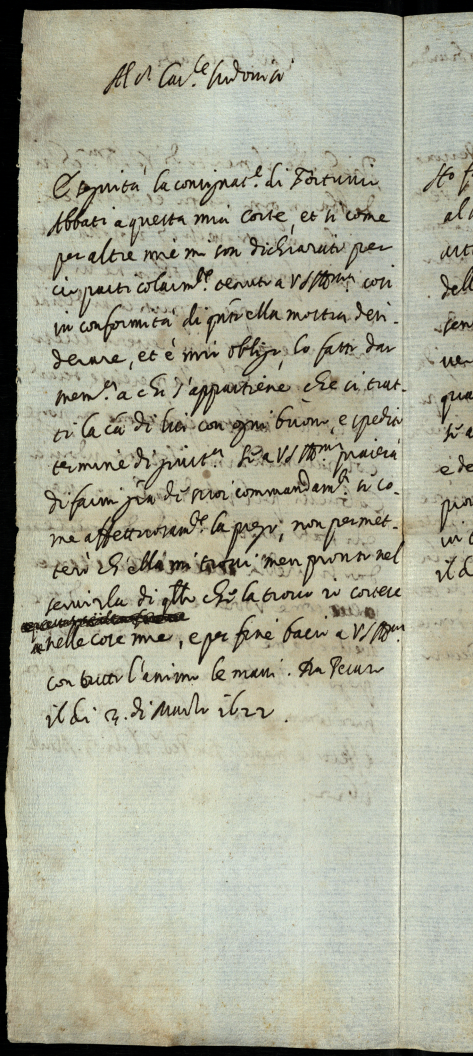 Al S.r Car.le Ludovisi
Seguita la consignat.e di Fortunio
Abbati a questa mia Corte, et si come
per altre mie mi son dichiarato per
ciò parti colarm.te tenuto a VS Ill.ma così
in conformità di qnto ella mostra desi-
derare, et è mio obligo, ho fatto dar
mem.le a chi s'appartiene che si trat-
ti la ca di lui con ogni buono, e spedito
termine di giust.a Se a VS Ill.ma piacerà
di farmi gra de suoi commandam.ti si co-
me affettuosam.te la prego, non permet-
terò ch'ella mi trovi men pronto nel
servirla di qllo che la trovo io cortese
nelle cose mie, e per fine bacio a VS Ill.ma
con tutto l'animo le mani. Da Pesaro
il di 2. di Marzo 1622.
al
dell
qua
e de
in
il d